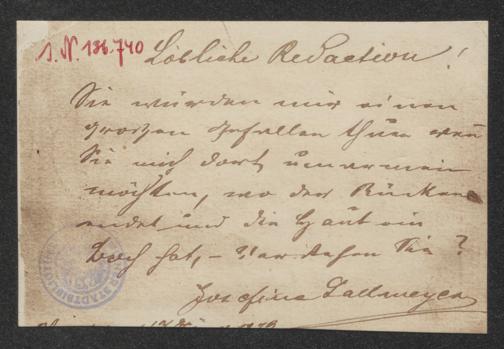 I. N. 136.740
Löbliche Redaction!
Sie würden mir einen
großen Gefallen thun wen̄
Sie mich dort umarmen
möchten, wo der Rücken
endet und die Haut ein
Loch hat, – Verstehen Sie?
Josefine Gallmeyer
STADTBIBLIOTHEK